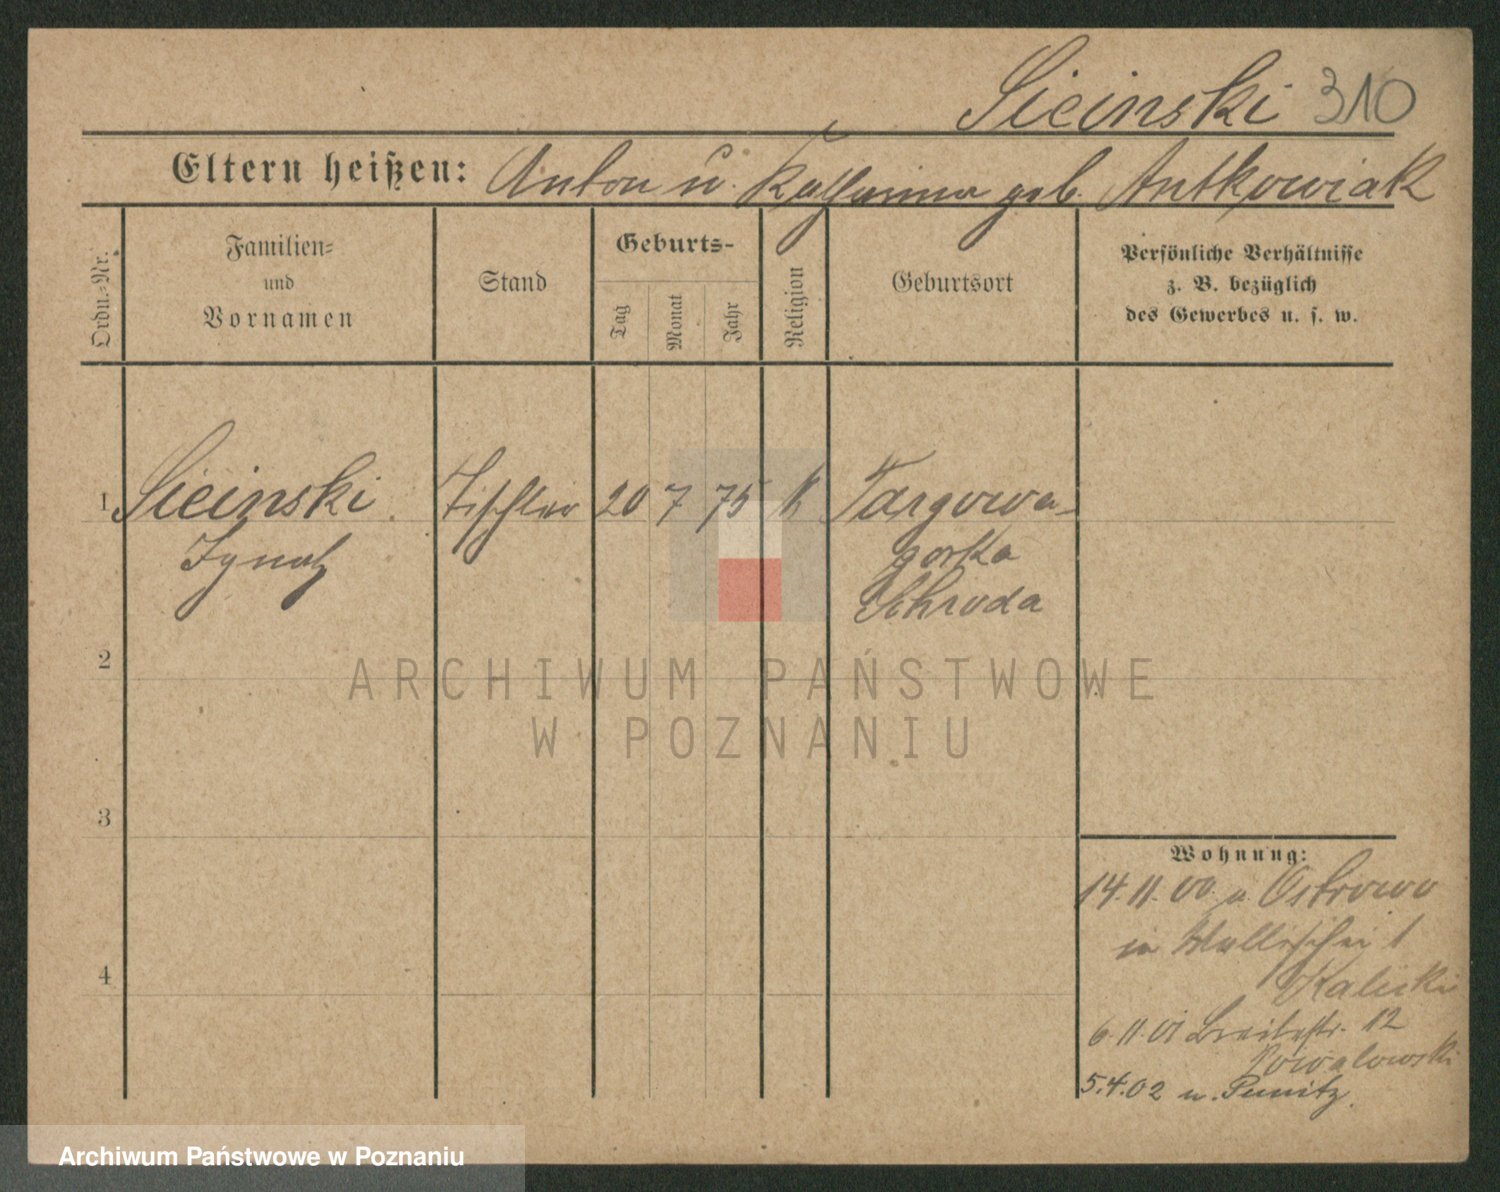 Sicinski 310
Eltern heißen: Anton u. Katharina geb. Antkowiak
Ordn.-Nr.
Familien-
und
Vornamen
Stand
Geburts-
Tag
Monat
Jahr
Religion
Geburtsort
Persönliche Verhältnisse
z. B. bezüglich
des Gewerbes u. s. w.
1 Sicinski Tischler 20 7 75 k Targowa-
Ignatz gorka
Schroda
2
ARCHIWUM PAŃSTWOWE
W POZNANIU
3
Wohnung:
14.11.00 v. Ostrowo
in Wallischei 1
4
Kalicki
6.11.01 Breitestr. 12
5.4.02 n. Punitz
Archiwum Państwowe w Poznaniu